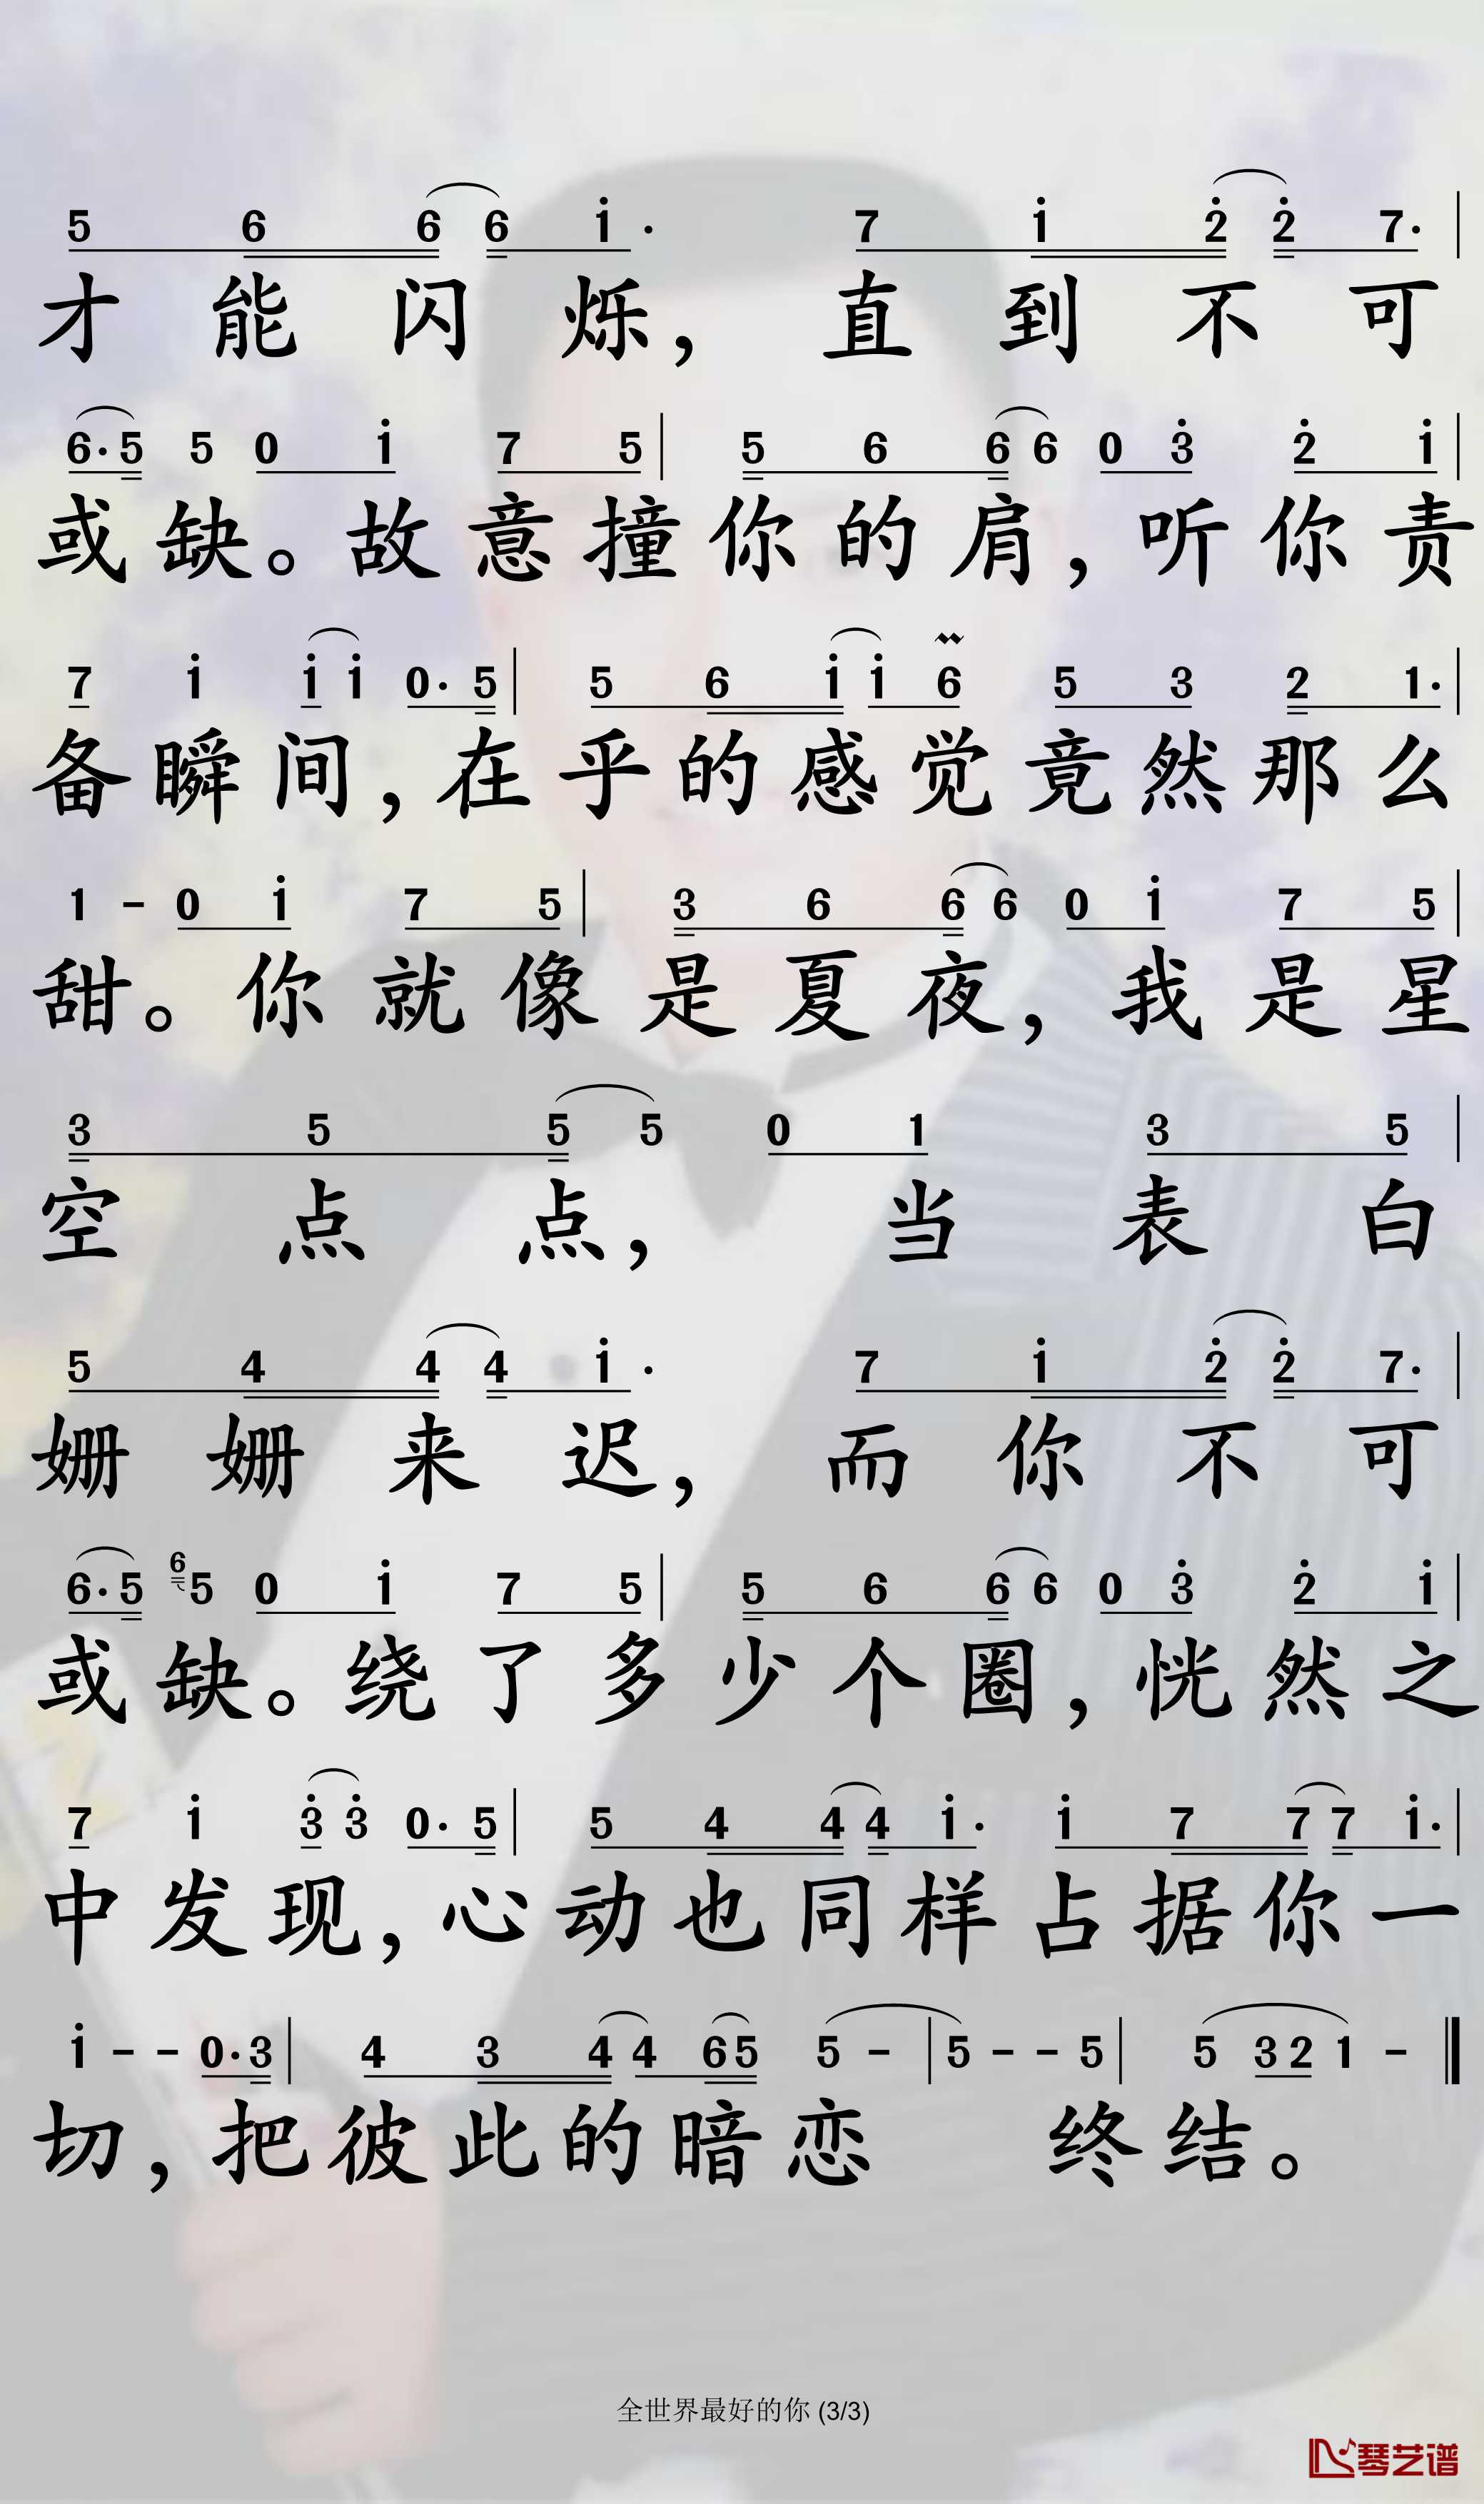 5 6 6 6 i· 7 i 2̇ 2̇ 7· |
才能闪烁，直到不可
6·5 5 0 i 7 5 | 5 6 6 6 0 3̇ 2̇ i |
或缺。故意撞你的肩，听你责
7 i i i 0·5 | 5 6 i i 6 5 3 2 1· |
备瞬间，在乎的感觉竟然那么
1 - 0 i 7 5 | 3 6 6 6 0 i 7 5 |
甜。你就像是夏夜，我是星
3 5 5 5 0 1 3 5 |
空点点，当表白
5 4 4 4 i· 7 i 2̇ 2̇ 7· |
姗姗来迟，而你不可
6·5 6 5 0 i 7 5 | 5 6 6 6 0 3̇ 2̇ i |
或缺。绕了多少个圈，恍然之
7 i 3̇ 3̇ 0·5 | 5 4 4 4 i· i 7 7 7 i· |
中发现，心动也同样占据你一
i - - 0·3 | 4 3 4 4 6 5 5 - | 5 - - 5 | 5 3 2 1 - ‖
切，把彼此的暗恋 终结。
全世界最好的你 (3/3)
琴艺谱